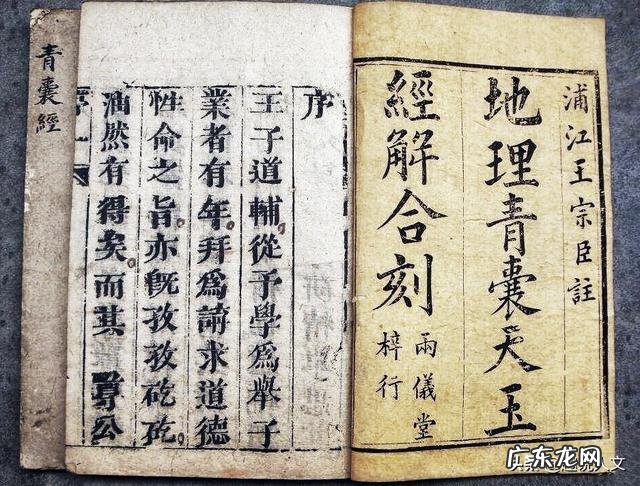 浦江王宗臣註
地理青囊天玉
經解合刻
兩儀堂
梓行
序
王子道輔從予學為舉子
業者有年拜為請求道德
性命之旨亦既孜孜矻矻
油然有得矣而其尊公
青囊經
序一
广东龙网